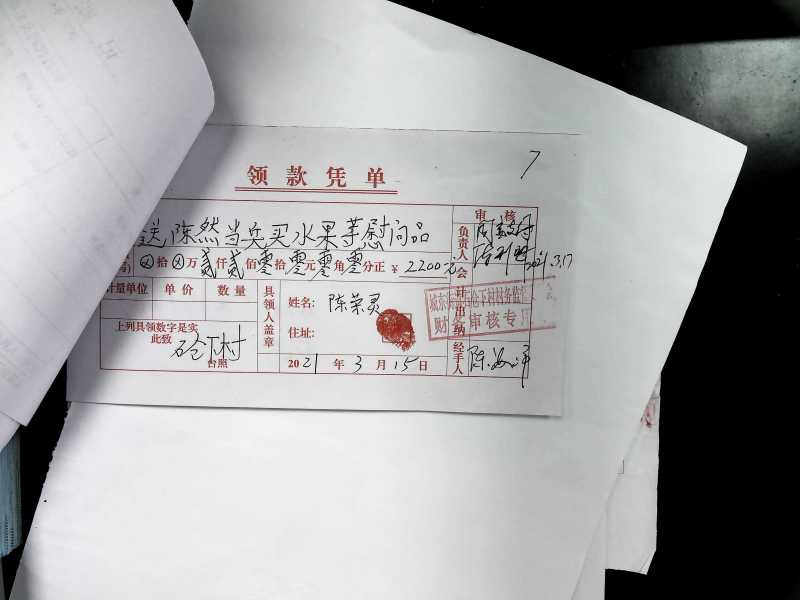 7
领款凭单
送陈然当兵买水果等慰问品
审核
负责人
2021.3.17
号) ⊗拾⊗万贰仟贰佰零拾零元零角零分正 ¥ 2200元
会计
计量单位 单价 数量
具领人盖章
姓名: 陈荣灵
住址:
出纳
财务审核专用
上列具领数字是实
此致
砼下村
台照
2021年3月15日
经手人